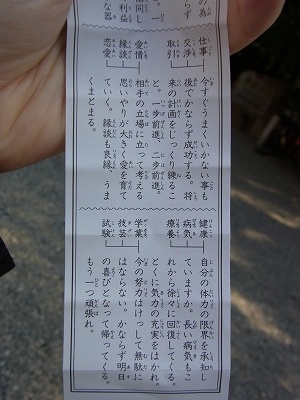 の為
らず
。一
同し
利益
な器
仕事
交渉
取引
今すぐうまくいかない事も
後でかならず成功する。将
来の計画をじっくり練るこ
と。一歩前進、二歩前進。
愛情
縁談
恋愛
相手の立場に立って考える
思いやりが大きく愛を育て
ていく。縁談も良縁、うま
くまとまる。
健康
病気
療養
自分の体力の限界を承知し
ていますか。長い病気もこ
れから徐々に回復してくる。
とくに気力の充実をはかれ。
学業
技芸
試験
今の努力はけっして無駄に
はならない。かならず明日
の喜びとなって帰ってくる。
もう一つ頑張れ。